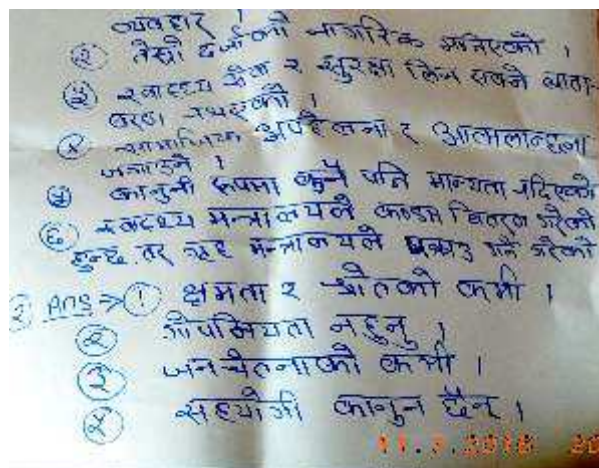 व्यवहार ।
② तेस्रो दर्जाको नागरिक मानिएको ।
③ स्वास्थ्य सेवा र सुरक्षा लिन सक्ने वाता-
वरण नभएको ।
④ सामाजिक अवहेलना र
जनाउने ।
⑤ कानुनी रूपमा कुनै पनि मान्यता नदिएको
⑥ स्वास्थ्य मन्त्रालयले कण्डम वितरण गरेको
हुन्छ तर गृह मन्त्रालयले पक्राउ गर्ने गरेको
② Ans ⇒ ① क्षमता र श्रोतको कमी ।
② गोपनियता नहुनु ।
③ जनचेतनाको कमी ।
④ सहयोगी कानुन छैन ।
11.3.2016 20